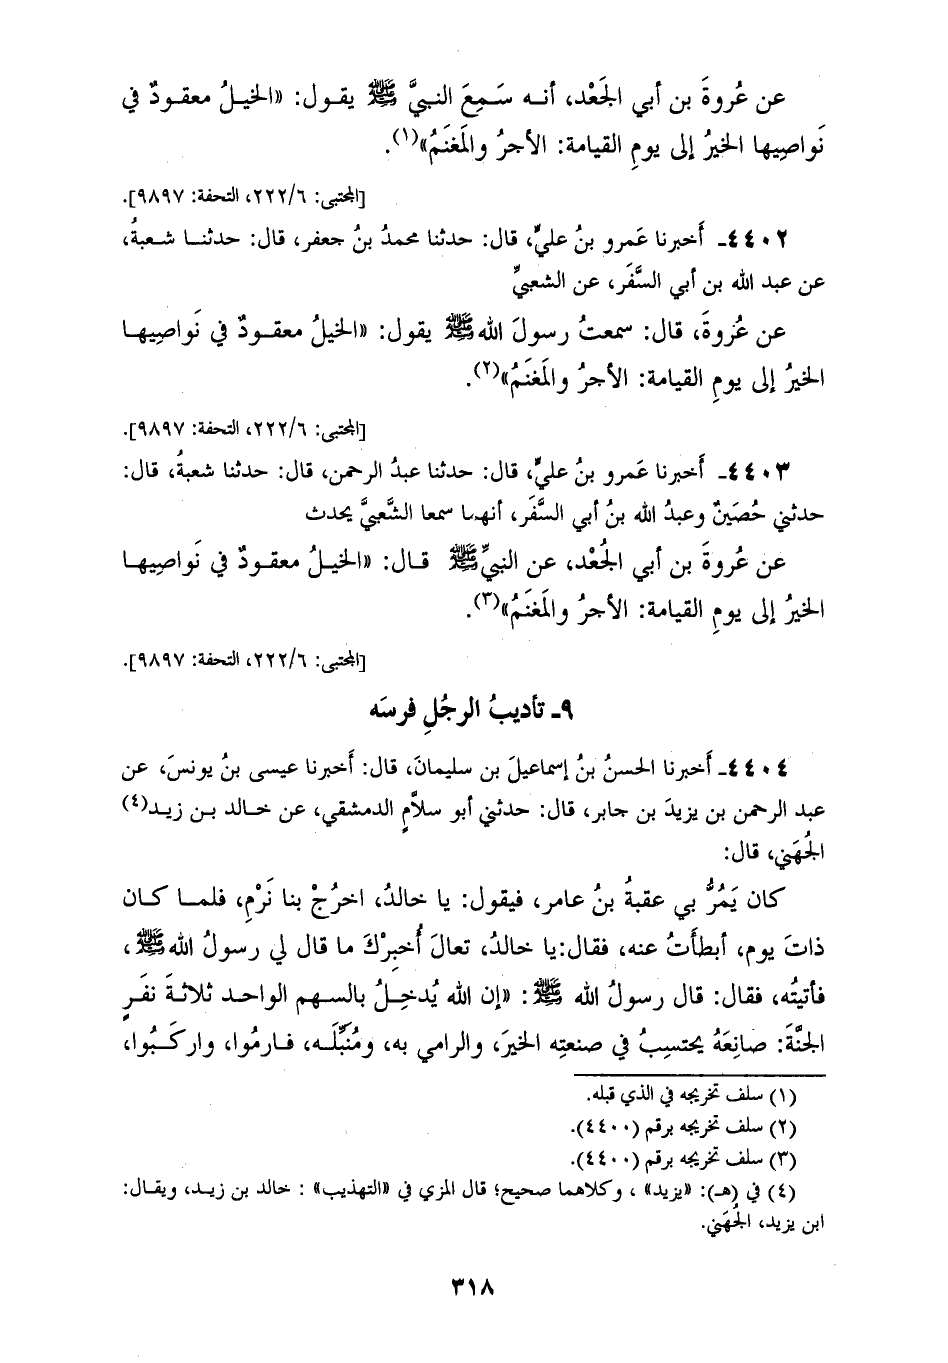 عن عُروةَ بن أبي الجَعْد، أنه سَمِعَ النبيَّ ﷺ يقول: «الخيلُ معقودٌ في
نَواصِيها الخيرُ إلى يومِ القيامة: الأجرُ والمَغنَمُ»(١).
[المجتبى: ٢٢٢/٦، التحفة: ٩٨٩٧].
٤٤٠٢ـ أَخبرنا عَمرو بنُ عليٍّ، قال: حدثنا محمدُ بنُ جعفر، قال: حدثنا شعبةُ،
عن عبد الله بن أبي السَّفَر، عن الشعبيِّ
عن عُروةَ، قال: سمعتُ رسولَ الله ﷺ يقول: «الخيلُ معقودٌ في نَواصِيها
الخيرُ إلى يومِ القيامة: الأجرُ والمَغنَمُ»(٢).
[المجتبى: ٢٢٢/٦، التحفة: ٩٨٩٧].
٤٤٠٣ـ أَخبرنا عَمرو بنُ عليٍّ، قال: حدثنا عبدُ الرحمن، قال: حدثنا شعبةُ، قال:
حدثني حُصَينٌ وعبدُ الله بنُ أبي السَّفَر، أنهما سمعا الشَّعبيَّ يحدث
عن عُروةَ بن أبي الجُعْد، عن النبيِّ ﷺ قال: «الخيلُ معقودٌ في نَواصِيها
الخيرُ إلى يومِ القيامة: الأجرُ والمَغنَمُ»(٣).
[المجتبى: ٢٢٢/٦، التحفة: ٩٨٩٧].
٩ـ تأديبُ الرجُلِ فرسَه
٤٤٠٤ـ أَخبرنا الحسنُ بنُ إسماعيلَ بن سليمانَ، قال: أَخبرنا عيسى بنُ يونسَ، عن
عبد الرحمن بن يزيدَ بن جابر، قال: حدثني أبو سلاَّمٍ الدمشقي، عن خالد بن زيد(٤)
الجُهَني، قال:
كان يَمُرُّ بي عقبةُ بنُ عامر، فيقول: يا خالدُ، اخرُجْ بنا نَرْمِ، فلما كان
ذاتَ يوم، أبطأَتُ عنه، فقال:يا خالدُ، تعالَ أُخبِرْكَ ما قال لي رسولُ الله ﷺ،
فأتيتُه، فقال: قال رسولُ الله ﷺ: «إن الله يُدخِلُ بالسهم الواحد ثلاثةَ نفَرٍ
الجنَّةَ: صانِعَهُ يحتسِبُ في صنعتِه الخيرَ، والرامي به، ومُنَبِّلَه، فارمُوا، واركَبُوا،
(١) سلف تخريجه في الذي قبله.
(٢) سلف تخريجه برقم (٤٤٠٠).
(٣) سلف تخريجه برقم (٤٤٠٠).
(٤) في (هـ): «يزيد» ، وكلاهما صحيح؛ قال المزي في «التهذيب» : خالد بن زيد، ويقال:
ابن يزيد، الجُهَني.
٣١٨